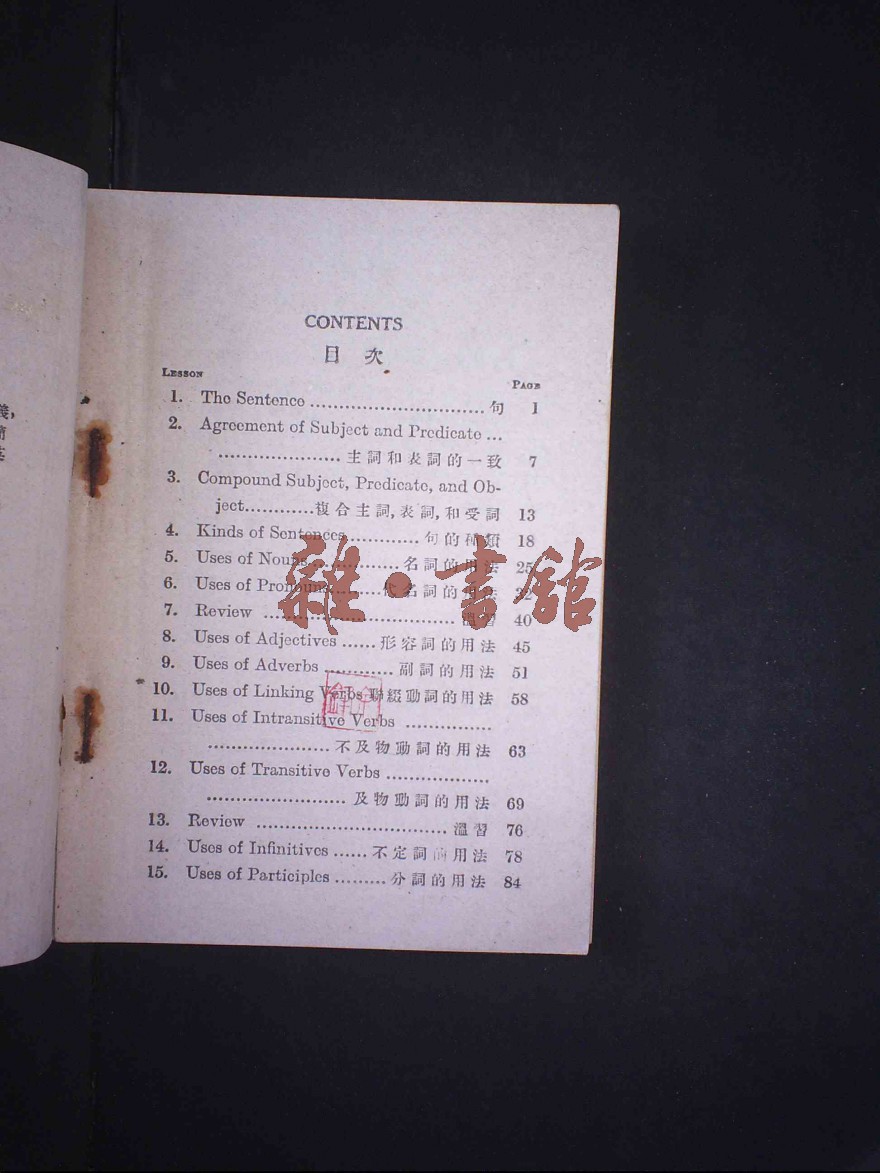 CONTENTS
目次
LESSON
PAGE
1. The Sentence .............................. 句 1
2. Agreement of Subject and Predicate ...
..................... 主詞和表詞的一致 7
3. Compound Subject, Predicate, and Ob-
ject............複合主詞,表詞,和受詞 13
4. Kinds of Sentences............. 句的種類 18
5. Uses of Nouns............... 名詞的用法 25
6. Uses of Pronouns......... 代名詞的用法 32
7. Review ................................. 溫習 40
8. Uses of Adjectives ...... 形容詞的用法 45
9. Uses of Adverbs ............ 副詞的用法 51
10. Uses of Linking Verbs 聯綴動詞的用法 58
11. Uses of Intransitive Verbs ...............
..................... 不及物動詞的用法 63
12. Uses of Transitive Verbs ..................
........................ 及物動詞的用法 69
13. Review ................................. 溫習 76
14. Uses of Infinitives ...... 不定詞的用法 78
15. Uses of Participles ......... 分詞的用法 84
雜·書館